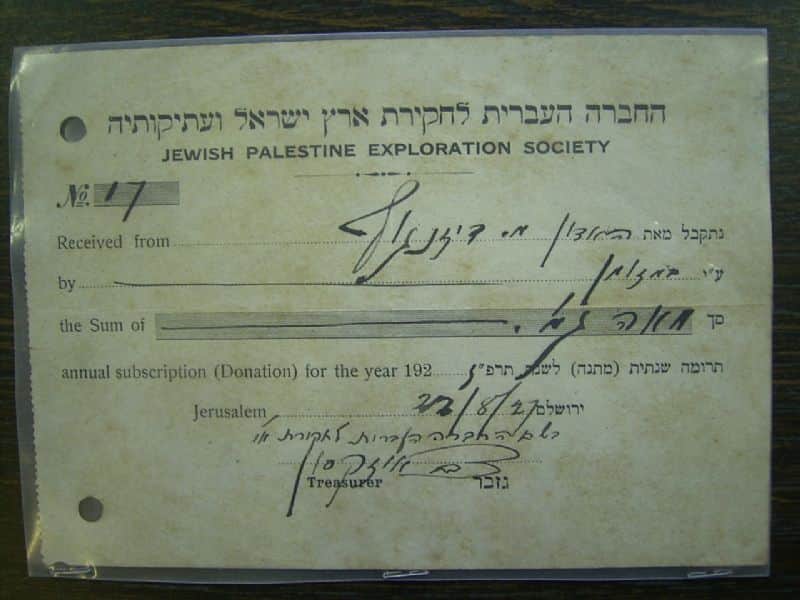 החברה העברית לחקירת ארץ ישראל ועתיקותיה
JEWISH PALESTINE EXPLORATION SOCIETY
No. 17
Received from האדון מ. דיזנגוף נתקבל מאת
by במזומן ע״י
the Sum of מאה סך
annual subscription (Donation) for the year 192 תרומה שנתית (מתנה) לשנת תרפ״ז
Jerusalem ירושלם
בשם החברה העברית לחקירת א״י
Treasurer גזבר